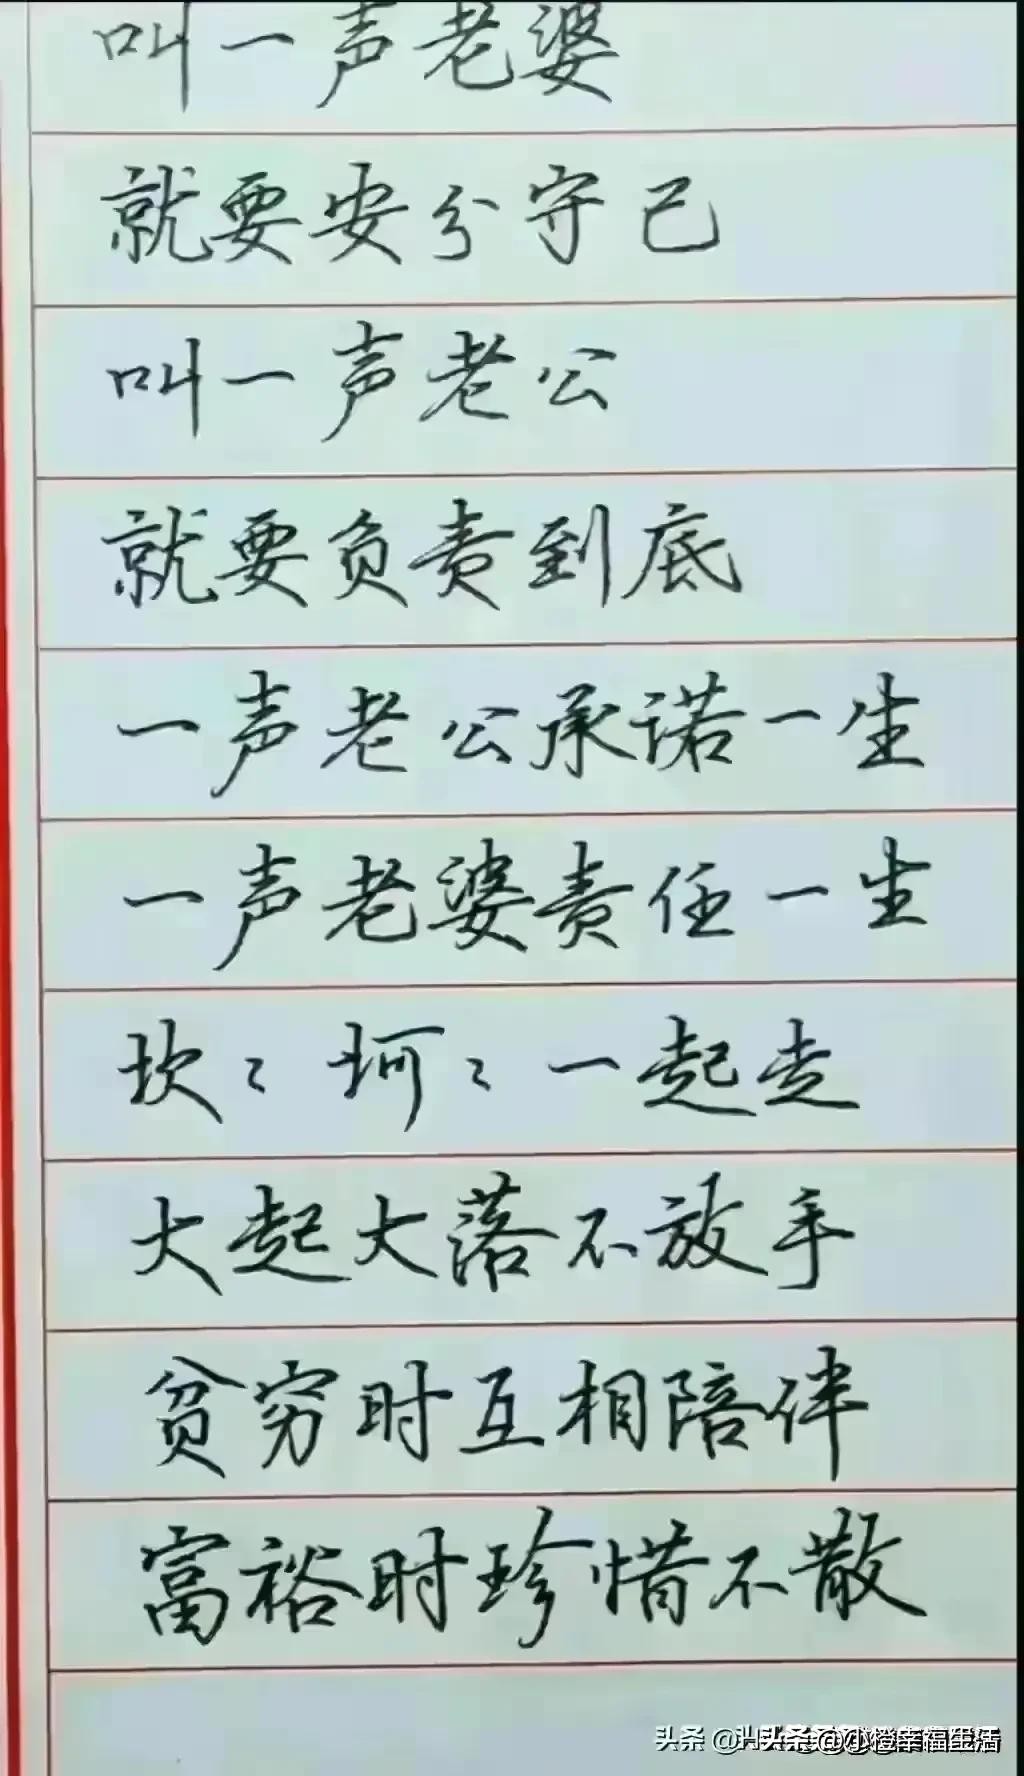 叫一声老婆
就要安分守己
叫一声老公
就要负责到底
一声老公承诺一生
一声老婆责任一生
坎々坷々一起走
大起大落不放手
贫穷时互相陪伴
富裕时珍惜不散
头条 @小橙幸福生活